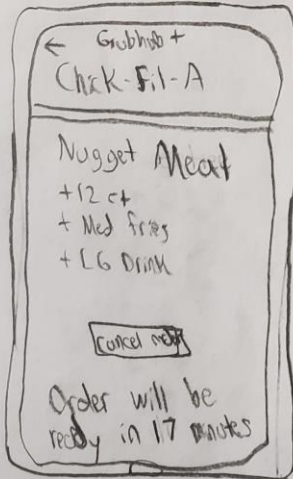 ← Grubhub +
Chick-Fil-A
Nugget Meat
+12 ct
+ Med fries
+ LG Drink
Cancel
Order will be
ready in 17 minutes